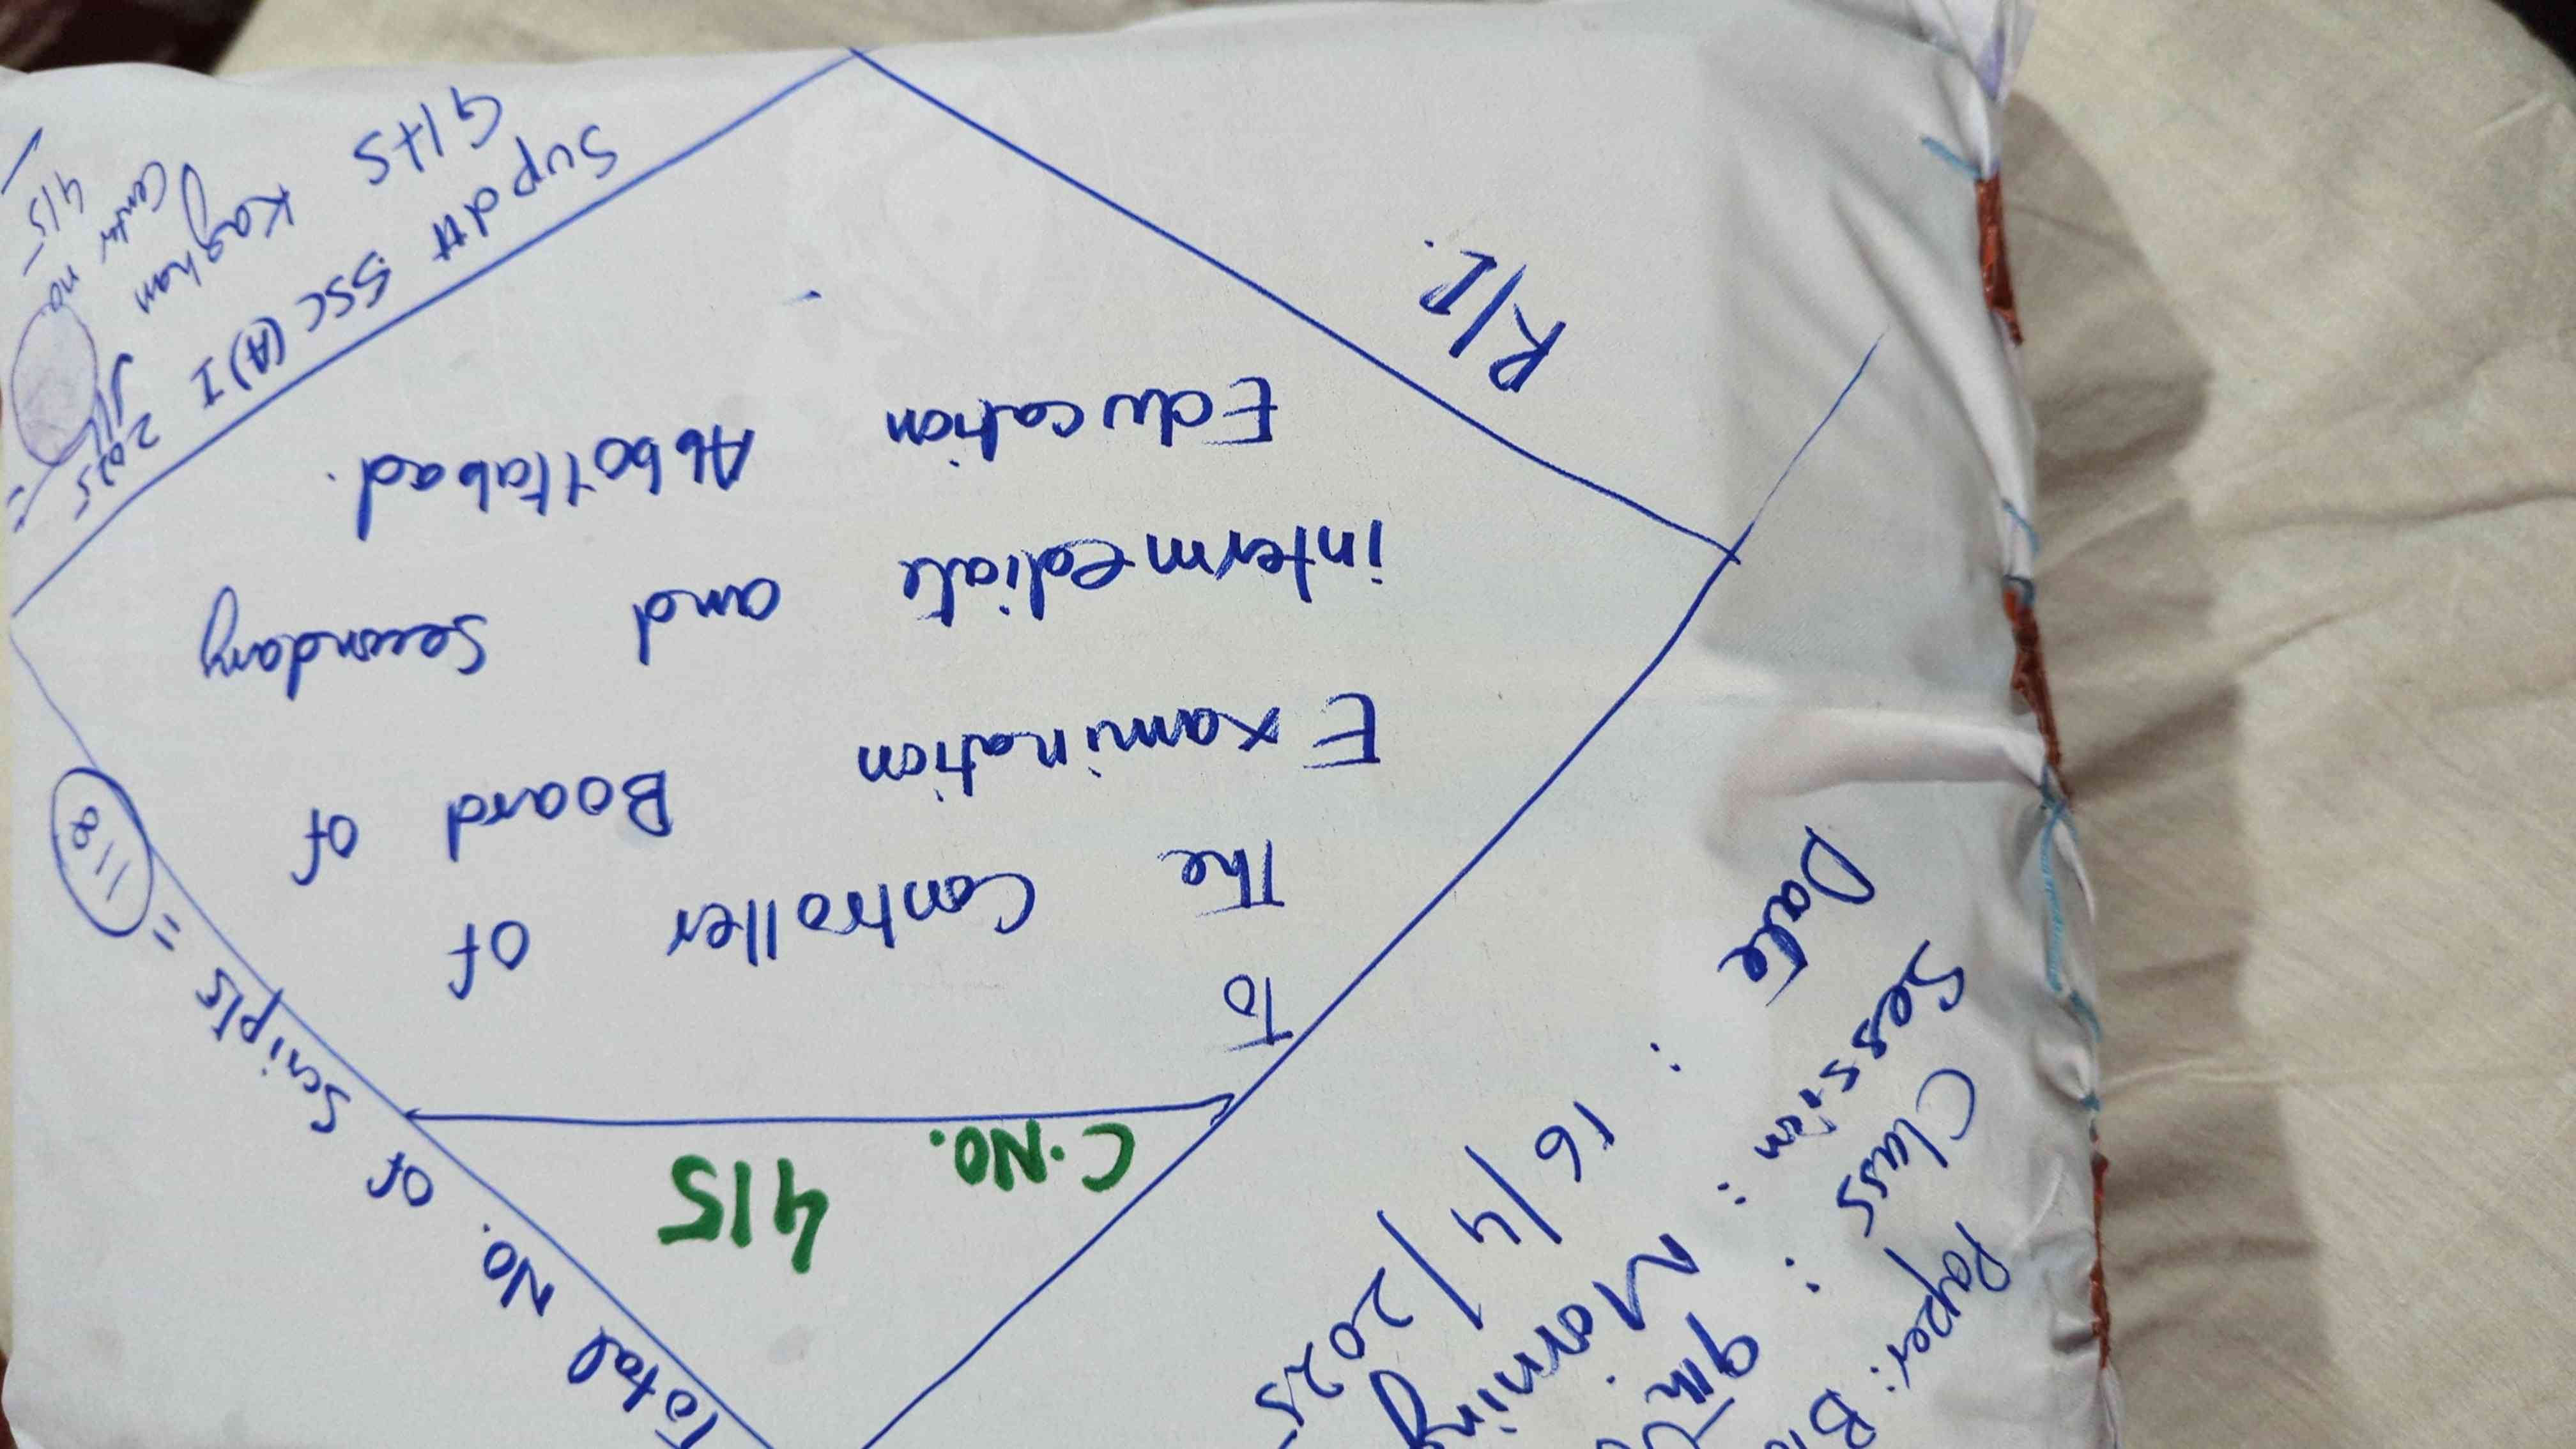 Paper: 
Class : 9th
Session : Morning
Date : 16/4/2025
Total No. of Scripts =
C.No.
415
To
The Controller of
Examination Board of
intermediate and Secondary
Education Abbottabad.
R/L.
Supdtt SSC (A) I 2025
GHS Kaghan
Center no
415